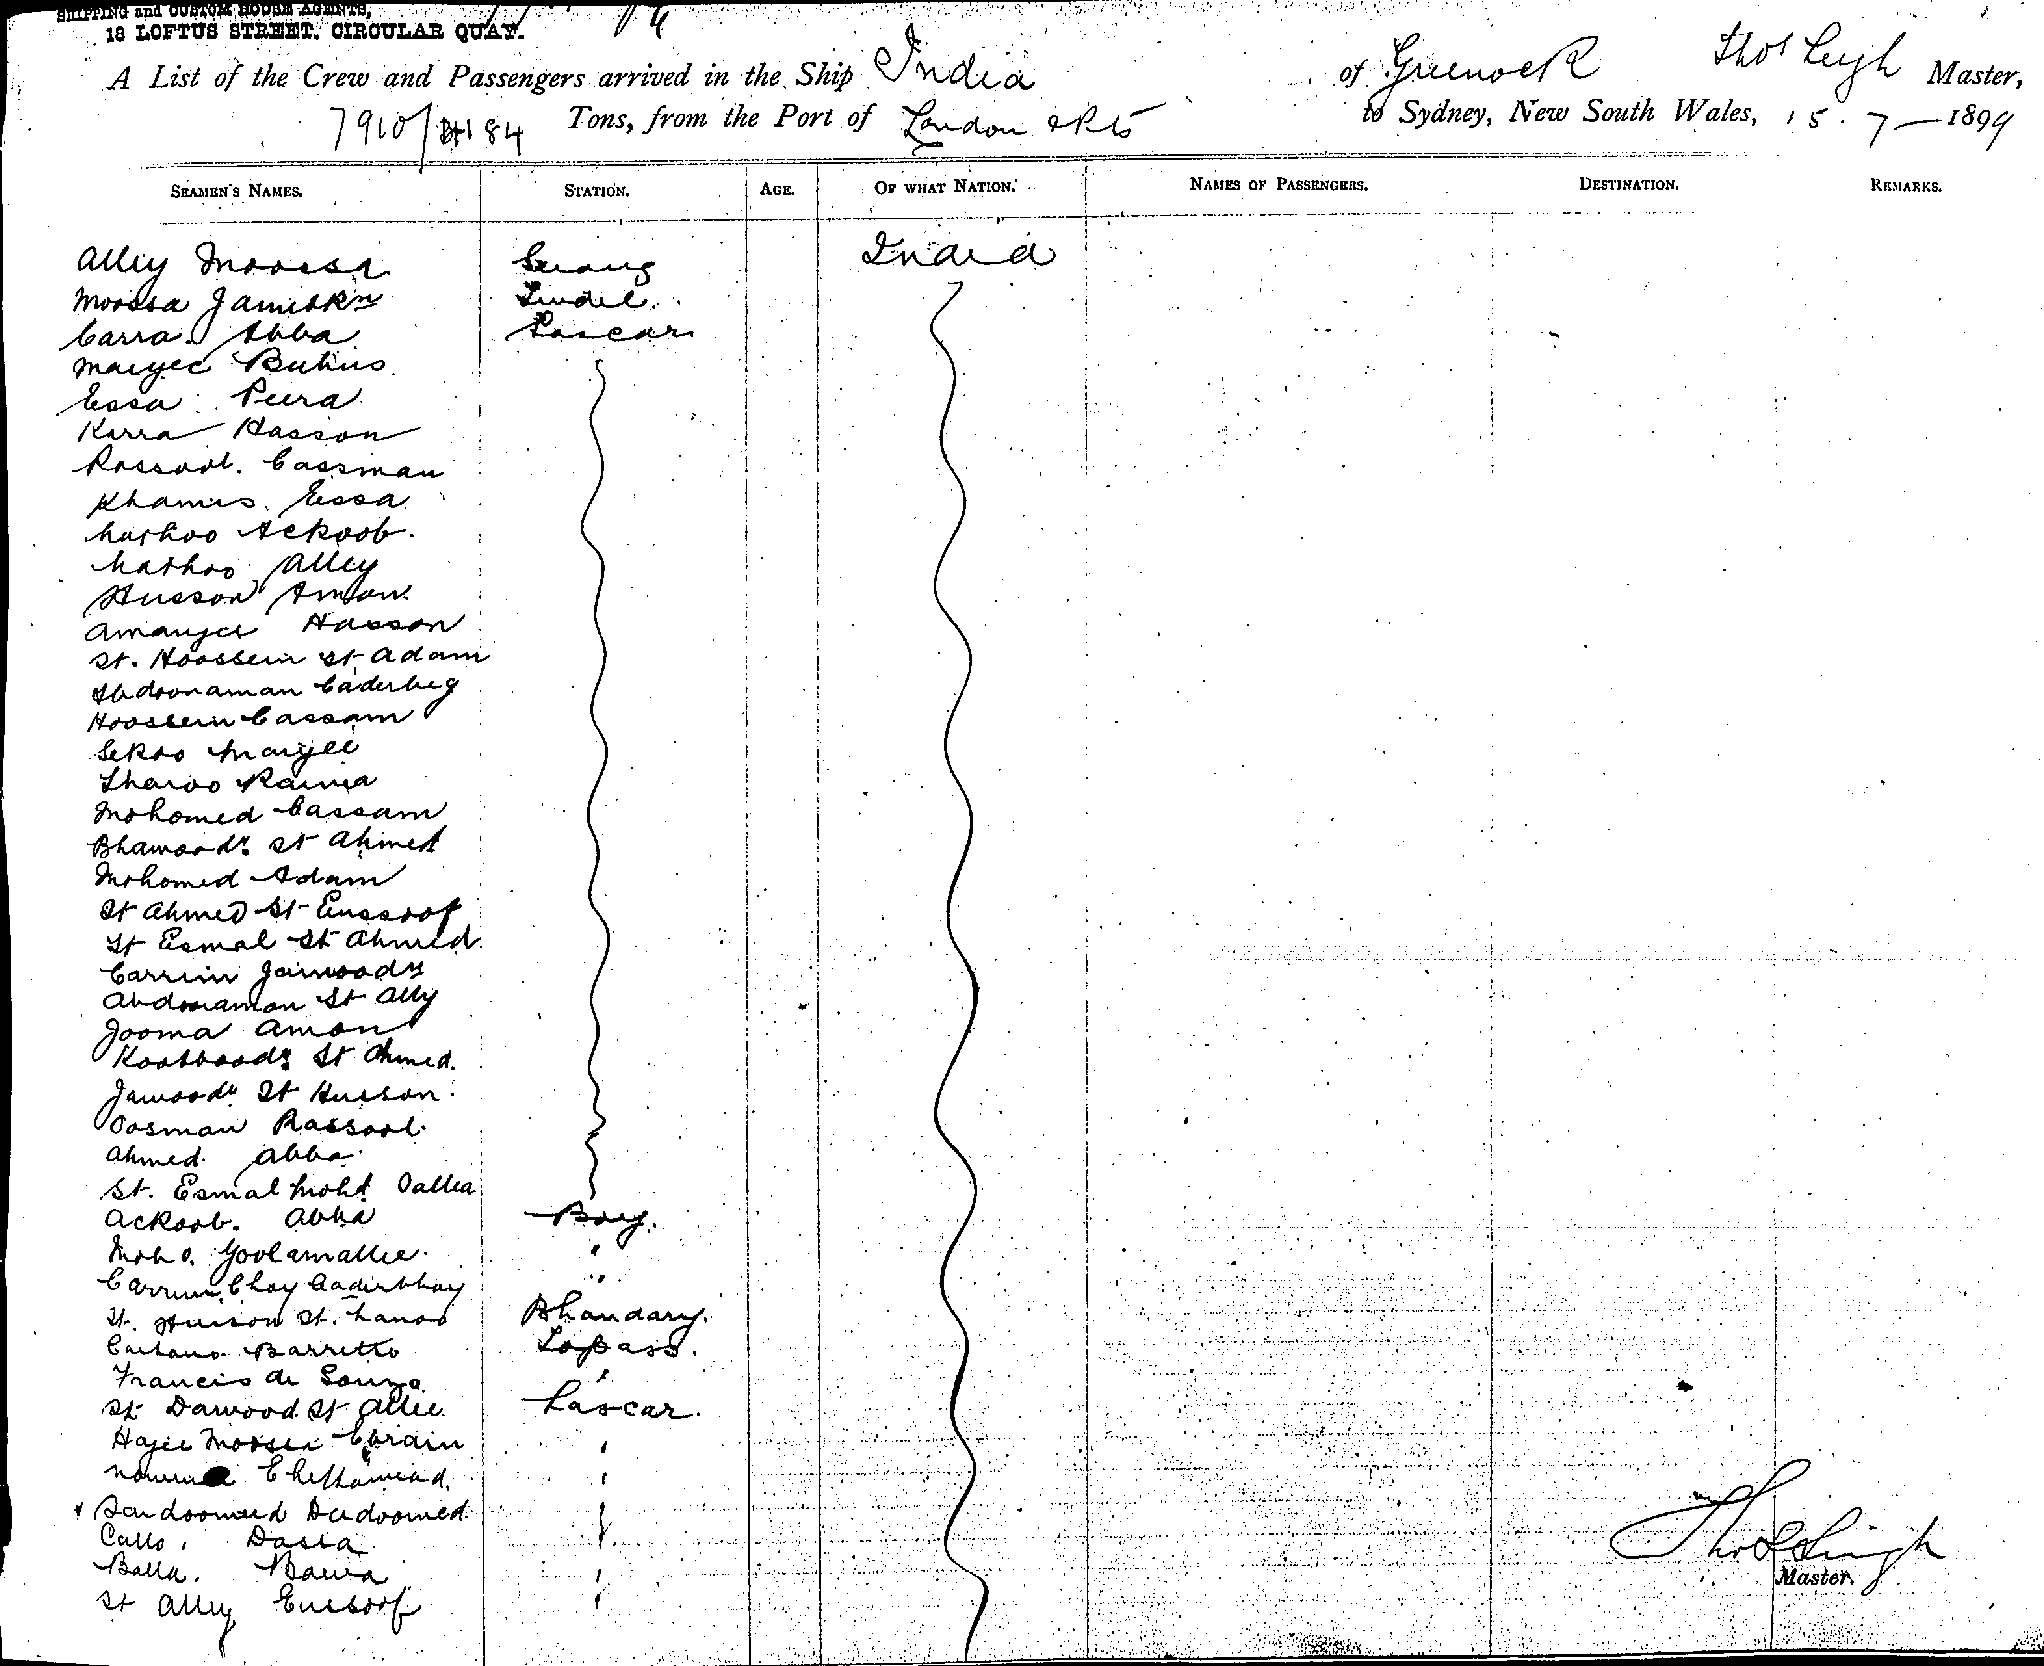 SHIPPING and CUSTOM HOUSE AGENTS,
18 LOFTUS STREET. CIRCULAR QUAY.
A List of the Crew and Passengers arrived in the Ship India of Greenock Thos Leigh Master,
7910/4184 Tons, from the Port of London & Pts to Sydney, New South Wales, 15.7—1899
SEAMEN'S NAMES. STATION. AGE. OF WHAT NATION. NAMES OF PASSENGERS. DESTINATION. REMARKS.
Alley Moossa Serang India
Moossa Tindel
Carra Abba Lascar
Maryee
Essa Peera
Karra Hasson
Rassool. Cassman
Khamis Essa
Ackoob.
Alley
Husson Amon
Amanjee Hasson
St. Hoossein St Adam
Abdooraman Caderbeg
Hoossein Cassam
Sekoo
Tharoo
Mohomed Cassam
Bhawoodn St Ahmed
Mohomed Adam
St Ahmed St Eussoof
St Esmal St Ahmed
Carrim Jainoodn
Abdooraman St Ally
Jooma Amon
Kootboodn St Ahmed.
St Husson.
Oosman Rassool.
Ahmed. Abba.
St. Esmal Mohd Oallia
Ackoob. Abba Boy.
Mohd. Goolamallee. "
Carrim Bhoy Caderbhoy "
St. Husson St. Bhandary.
Caitano Barretto Topass.
Francis de Souza "
St Dawood St Allee Lascar.
Hajee Moossa Ebraim "
"
Dadoomed "
Callo. Dassa "
Balla. Bawa "
St Alley Eussoof "
Thos Leigh
Master.